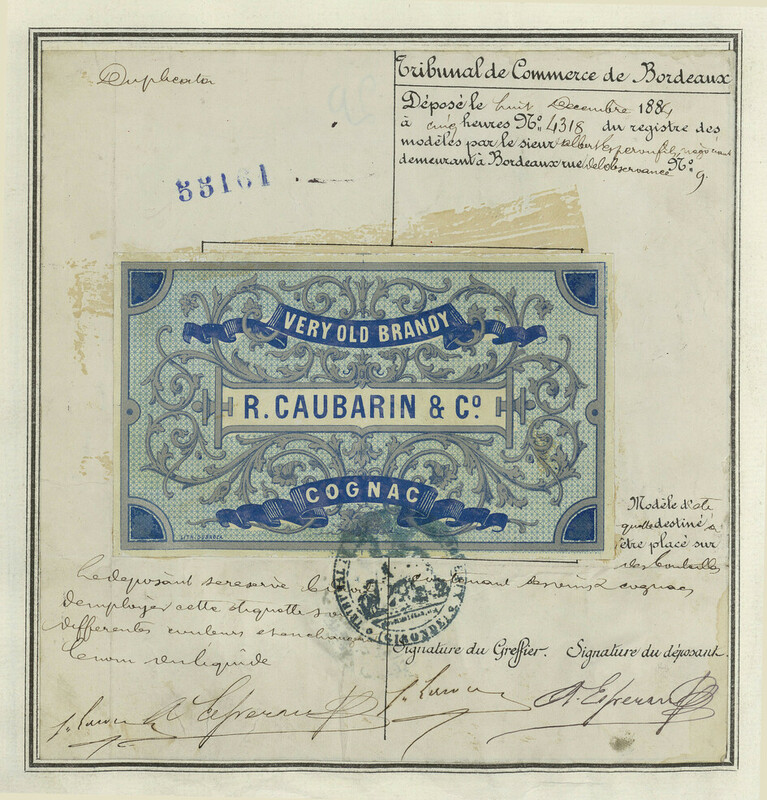 Duplicata
Tribunal de Commerce de Bordeaux
Déposé le huit Decembre 1884
à cinq heures N.º 4318 du registre des
modèles par le sieur Albert Esperon fils, négociant
demeurant à Bordeaux rue de l'observance N.º 9
55161
VERY OLD BRANDY
R. CAUBARIN & Cº
COGNAC
Modèle d'éti
quette destiné à
être placé sur
des bouteilles
Le déposant se reserve le contenant des vins & cognacs
d'employer cette étiquette
differentes couleurs et en changeant
le nom du liquide
Signature du Greffier. Signature du déposant.
A Esperon
A. Esperon